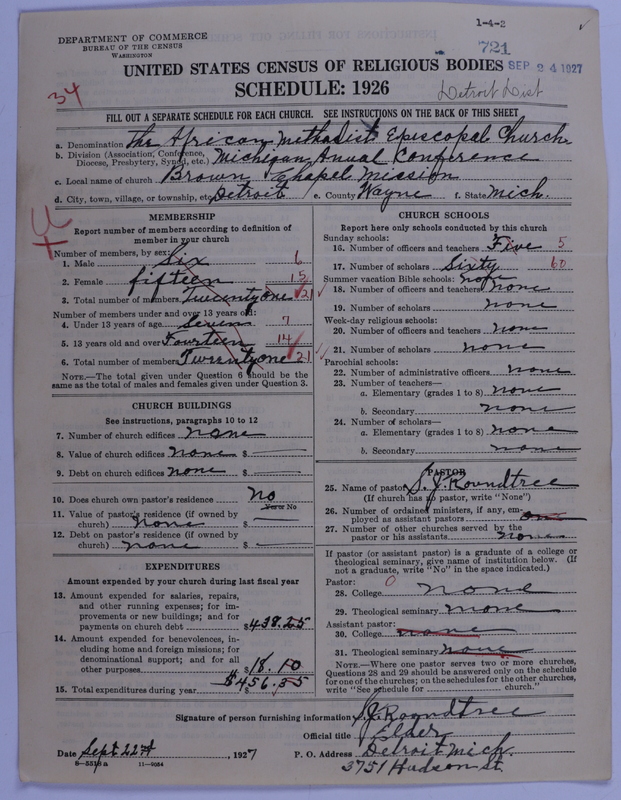 1-4-2
DEPARTMENT OF COMMERCE
BUREAU OF THE CENSUS
WASHINGTON
721 SEP 24 1927
UNITED STATES CENSUS OF RELIGIOUS BODIES
SCHEDULE: 1926
34 Detroit Dist
FILL OUT A SEPARATE SCHEDULE FOR EACH CHURCH. SEE INSTRUCTIONS ON THE BACK OF THIS SHEET
a. Denomination The African Methodist Episcopal Church
b. Division (Association, Conference, Diocese, Presbytery, Synod, etc.) Michigan Anual Conference
c. Local name of church Brown Chapel Mission
d. City, town, village, or township, etc. Detroit e. County Wayne f. State Mich.
MEMBERSHIP
Report number of members according to definition of
member in your church
Number of members, by sex:
1. Male Six 6
2. Female fifteen 15
3. Total number of members Twenty one 21
Number of members under and over 13 years old:
4. Under 13 years of age Seven 7
5. 13 years old and over Fourteen 14
6. Total number of members Twenty one 21
NOTE.—The total given under Question 6 should be the
same as the total of males and females given under Question 3.
CHURCH BUILDINGS
See instructions, paragraphs 10 to 12
7. Number of church edifices none
8. Value of church edifices none $
9. Debt on church edifices none $
10. Does church own pastor's residence No
Yes or No
11. Value of pastor's residence (if owned by
church) none $
12. Debt on pastor's residence (if owned by
church) none $
EXPENDITURES
Amount expended by your church during last fiscal year
13. Amount expended for salaries, repairs,
and other running expenses; for im-
provements or new buildings; and for
payments on church debt $438.25
14. Amount expended for benevolences, in-
cluding home and foreign missions; for
denominational support; and for all
other purposes $18.10
15. Total expenditures during year $456.35
CHURCH SCHOOLS
Report here only schools conducted by this church
Sunday schools:
16. Number of officers and teachers Five 5
17. Number of scholars Sixty 60
Summer vacation Bible schools: none
18. Number of officers and teachers none
19. Number of scholars none
Week-day religious schools:
20. Number of officers and teachers none
21. Number of scholars none
Parochial schools:
22. Number of administrative officers none
23. Number of teachers—
a. Elementary (grades 1 to 8) none
b. Secondary none
24. Number of scholars—
a. Elementary (grades 1 to 8) none
b. Secondary none
PASTOR
25. Name of pastor S. J. Roundtree
(If church has no pastor, write "None")
26. Number of ordained ministers, if any, em-
ployed as assistant pastors
27. Number of other churches served by the
pastor or his assistants none
If pastor (or assistant pastor) is a graduate of a college or
theological seminary, give name of institution below. (If
not a graduate, write "No" in the space indicated.)
Pastor: 0
28. College none
29. Theological seminary none
Assistant pastor:
30. College none
31. Theological seminary none
NOTE.—Where one pastor serves two or more churches,
Questions 28 and 29 should be answered only on the schedule
for one of the churches; on the schedules for the other churches,
write "See schedule for church."
Signature of person furnishing information S. J. Roundtree
Official title Elder
Date Sept 22, 1927 P. O. Address Detroit Mich.
8-5518a 11-9054 3751 Hudson st.